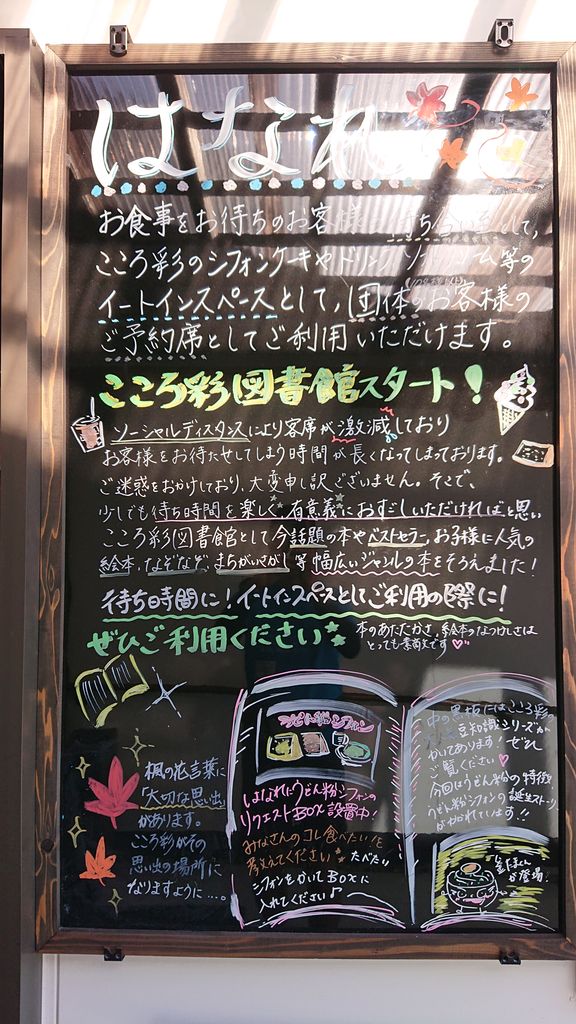 はなれ
お食事をお待ちのお客様の待ち合いとして、
こころ彩のシフォンケーキやドリンク、ソフトクリーム等の
イートインスペースとして、団体のお客様の
ご予約席としてご利用いただけます。
こころ彩図書館スタート!
ソーシャルディスタンスにより客席が激減しており
お客様をお待たせしてしまう時間が長くなってしまっております。
ご迷惑をおかけしており、大変申し訳ございません。そこで、
少しでも待ち時間を楽しく有意義におすごしいただければと思い
こころ彩図書館として今話題の本やベストセラー、お子様に人気の
絵本、なぞなぞ、まちがいさがし等幅広いジャンルの本をそろえました!
待ち時間に!イートインスペースとしてご利用の際に!
ぜひご利用ください
本のあたたかさ、絵本のなつかしさは
とっても素敵です♡
楓の花言葉に
「大切な思い出」
があります。
こころ彩がその
思い出の場所に
なりますように…。
うどん粉シフォン
はなれにうどん粉シフォンの
リクエストBOX設置中!
みなさんのコレ食べたい!を
教えてください たべたい
シフォンをかいてBOXに
入れてください♪
中の黒板にはこころ彩の
豆知識シリーズが
かいてあります!ぜひ
ご覧ください♡
今回はうどん粉の特徴、
うどん粉シフォンの誕生ストーリー
がかかれています!!
登場!